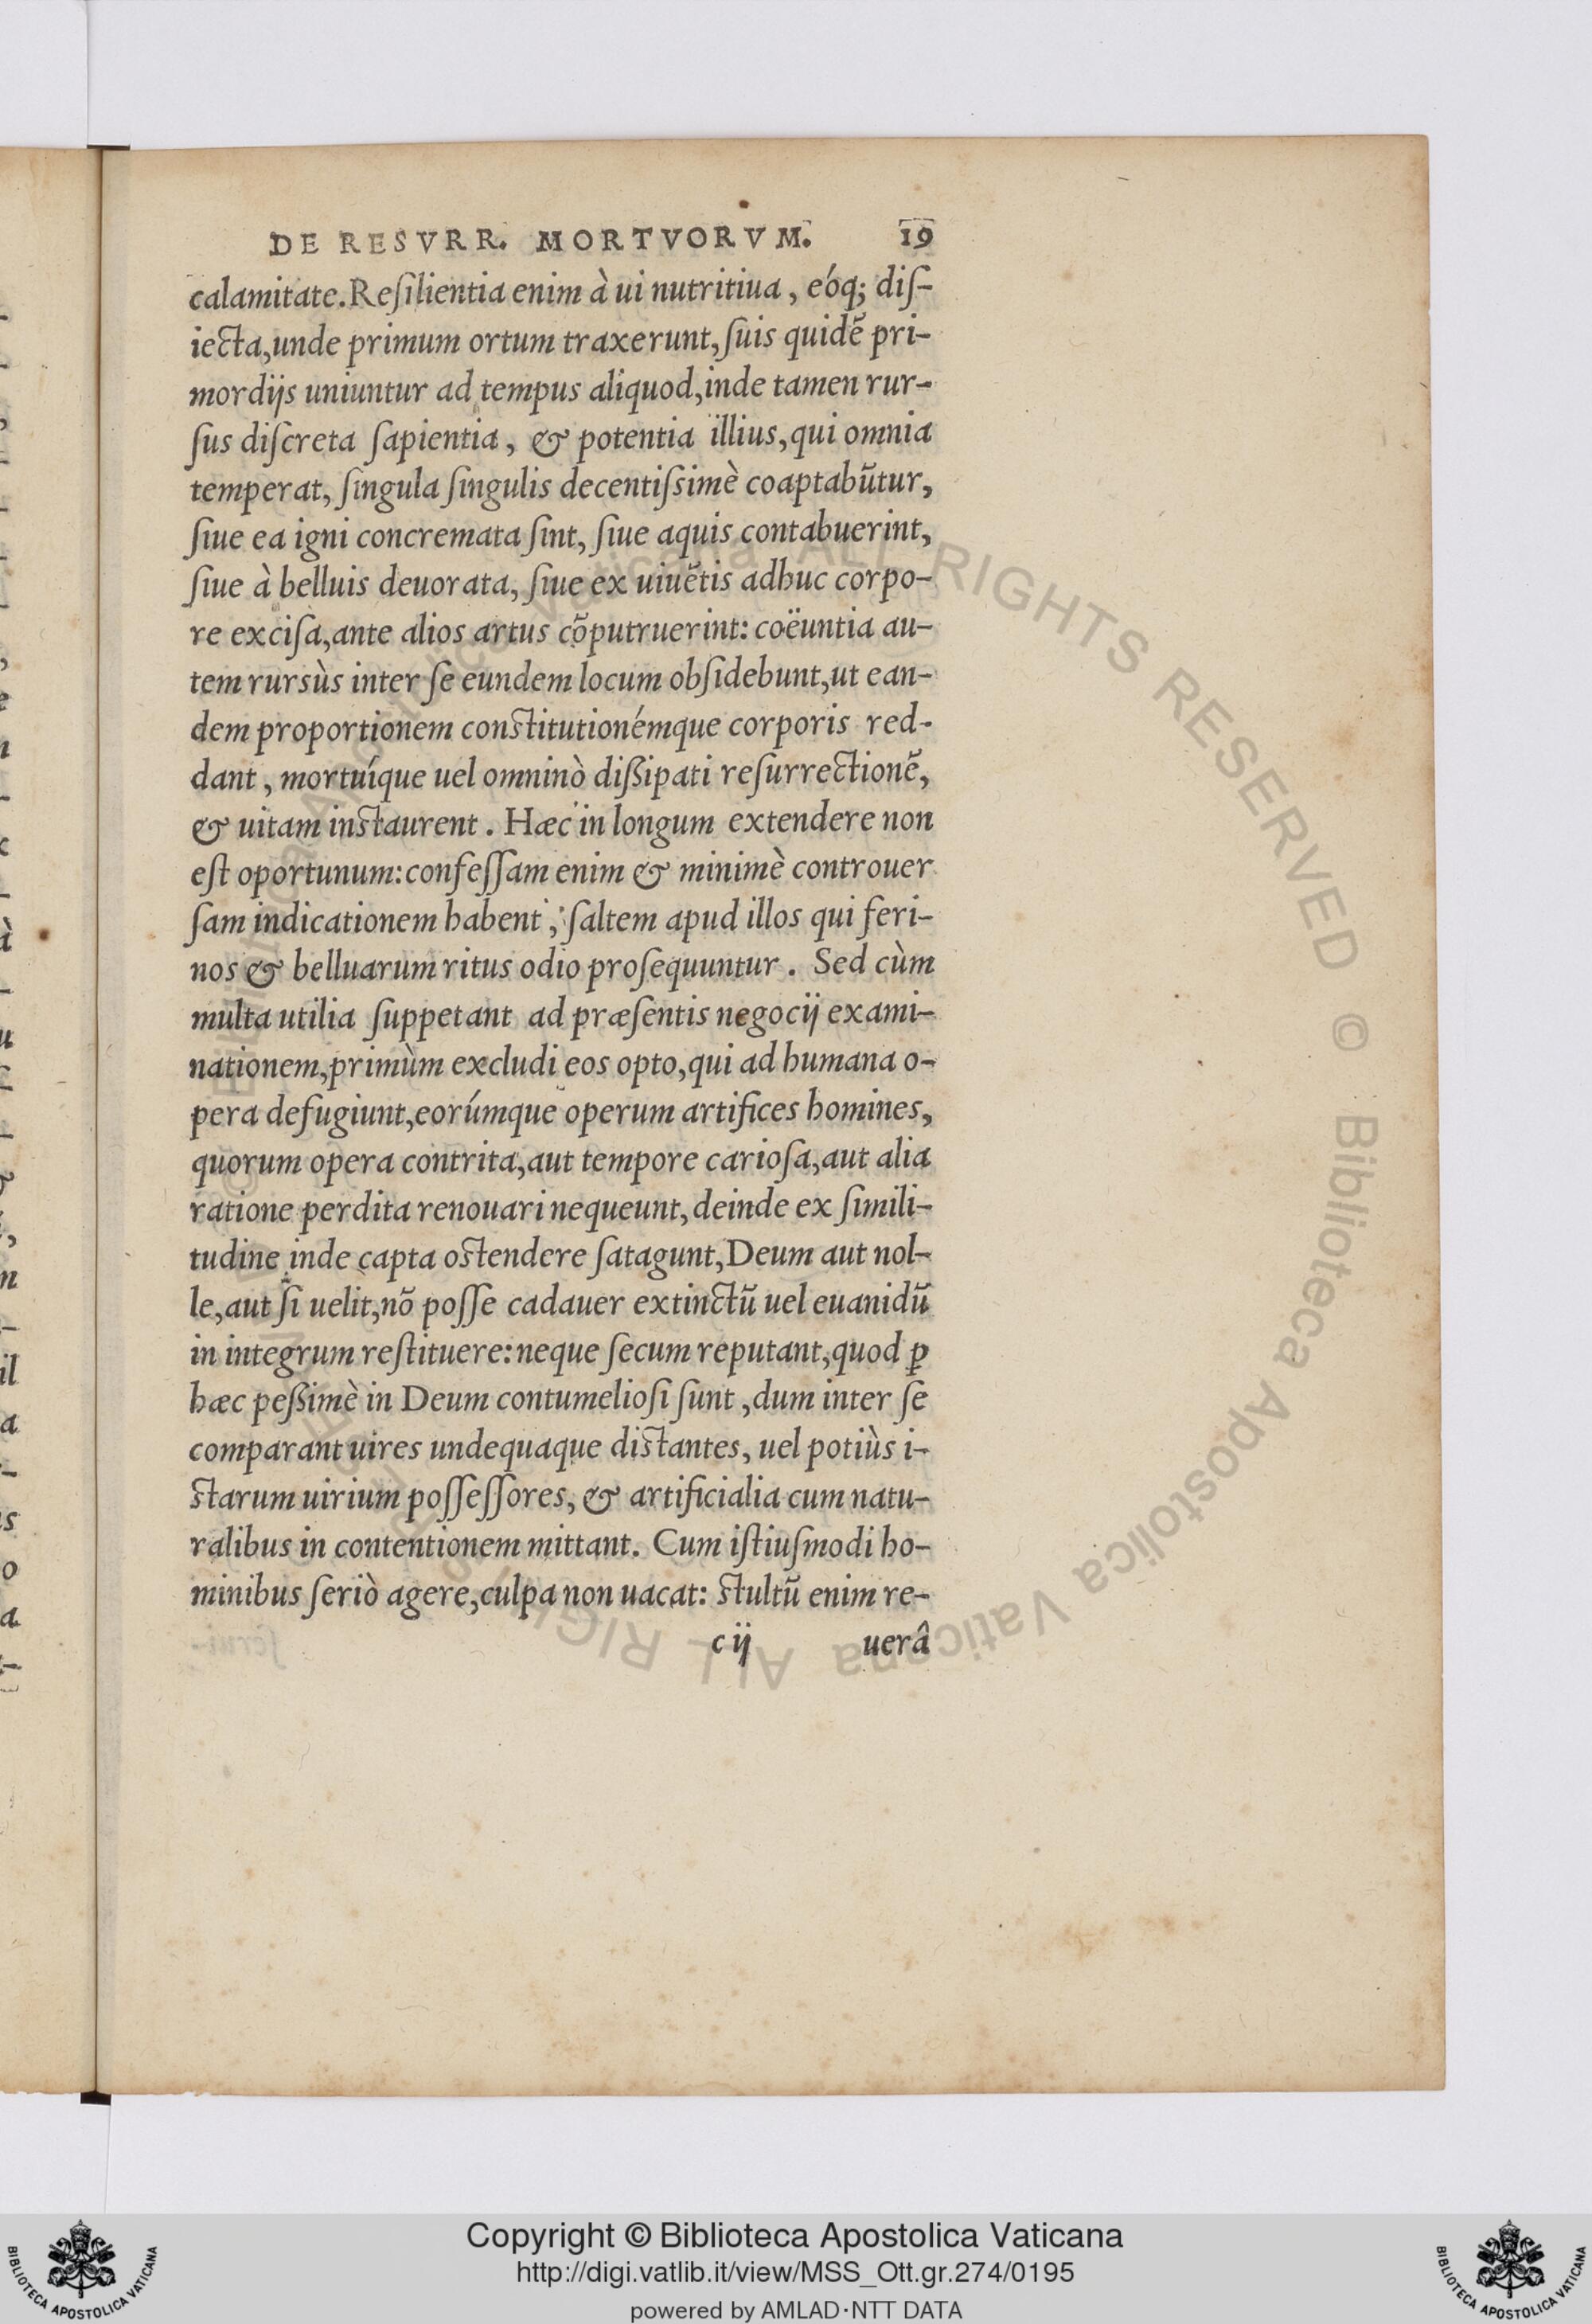 DE RESVRR. MORTVORVM. 19
calamitate. Reſilientia enim à ui nutritiua, eóq; diſ-
iecta, unde primum ortum traxerunt, ſuis quidẽ pri-
mordijs uniuntur ad tempus aliquod, inde tamen rur-
ſus diſcreta ſapientia, & potentia illius, qui omnia
temperat, ſingula ſingulis decentiſsimè coaptabũtur,
ſiue ea igni concremata ſint, ſiue aquis contabuerint,
ſiue à belluis deuorata, ſiue ex uiuẽtis adhuc corpo-
re exciſa, ante alios artus cõputruerint: coëuntia au-
tem rursùs inter ſe eundem locum obſidebunt, ut ean-
dem proportionem conſtitutionémque corporis red-
dant, mortuíque uel omninò dißipati reſurrectionẽ,
& uitam inſtaurent. Hæc in longum extendere non
eſt oportunum: confeſſam enim & minimè controuer
ſam indicationem habent, ſaltem apud illos qui feri-
nos & belluarum ritus odio proſequuntur. Sed cùm
multa utilia ſuppetant ad præſentis negocij exami-
nationem, primùm excludi eos opto, qui ad humana o-
pera defugiunt, eorúmque operum artifices homines,
quorum opera contrita, aut tempore carioſa, aut alia
ratione perdita renouari nequeunt, deinde ex ſimili-
tudine inde capta oſtendere ſatagunt, Deum aut nol-
le, aut ſi uelit, nõ poſſe cadauer extinctũ uel euanidũ
in integrum reſtituere: neque ſecum reputant, quod ꝑ
hæc peßimè in Deum contumelioſi ſunt, dum inter ſe
comparant uires undequaque diſtantes, uel potiùs i-
ſtarum uirium poſſeſſores, & artificialia cum natu-
ralibus in contentionem mittant. Cum iſtiuſmodi ho-
minibus ſeriò agere, culpa non uacat: ſtultũ enim re-
c ij uerâ
ALL RIGHTS RESERVED © Biblioteca Apostolica Vaticana
Copyright © Biblioteca Apostolica Vaticana
http://digi.vatlib.it/view/MSS_Ott.gr.274/0195
powered by AMLAD·NTT DATA
BIBLIOTECA APOSTOLICA VATICANA
BIBLIOTECA APOSTOLICA VATICANA